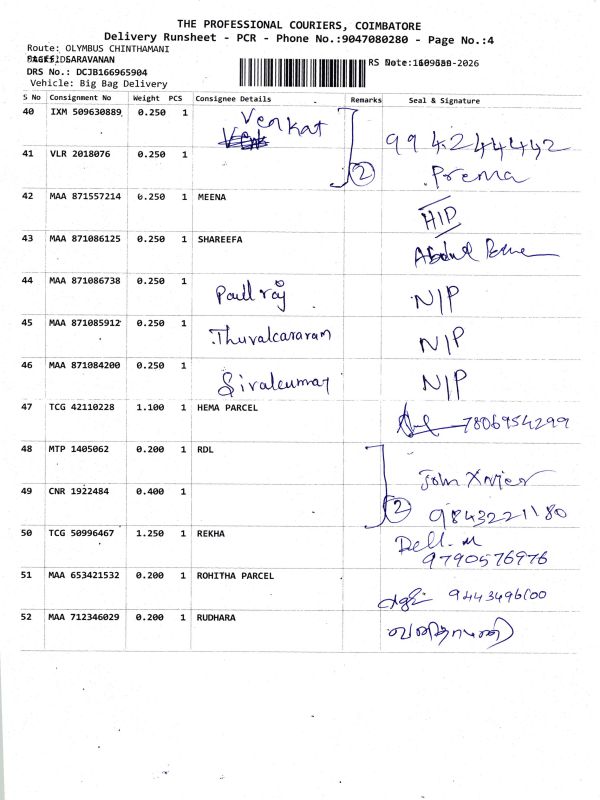 THE PROFESSIONAL COURIERS, COIMBATORE
Delivery Runsheet - PCR - Phone No.:9047080280 - Page No.:4
Route: OLYMBUS CHINTHAMANI
SARAVANAN
DRS No.: DCJB166965904
Vehicle: Big Bag Delivery
S No Consignment No Weight PCS Consignee Details Remarks Seal & Signature
40 IXM 509630889 0.250 1 Venkat 994244442
41 VLR 2018076 0.250 1 2 Prema
42 MAA 871557214 0.250 1 MEENA HIP
43 MAA 871086125 0.250 1 SHAREEFA Abdul
44 MAA 871086738 0.250 1 Paul raj N/P
45 MAA 871085912 0.250 1 Thuvalcararam N/P
46 MAA 871084200 0.250 1 Sivalcumar N/P
47 TCG 42110228 1.100 1 HEMA PARCEL 7806954299
48 MTP 1405062 0.200 1 RDL John Xavier
49 CNR 1922484 0.400 1 2 9843221180
50 TCG 50996467 1.250 1 REKHA Dell. M
9790576976
51 MAA 653421532 0.200 1 ROHITHA PARCEL 9443496100
52 MAA 712346029 0.200 1 RUDHARA